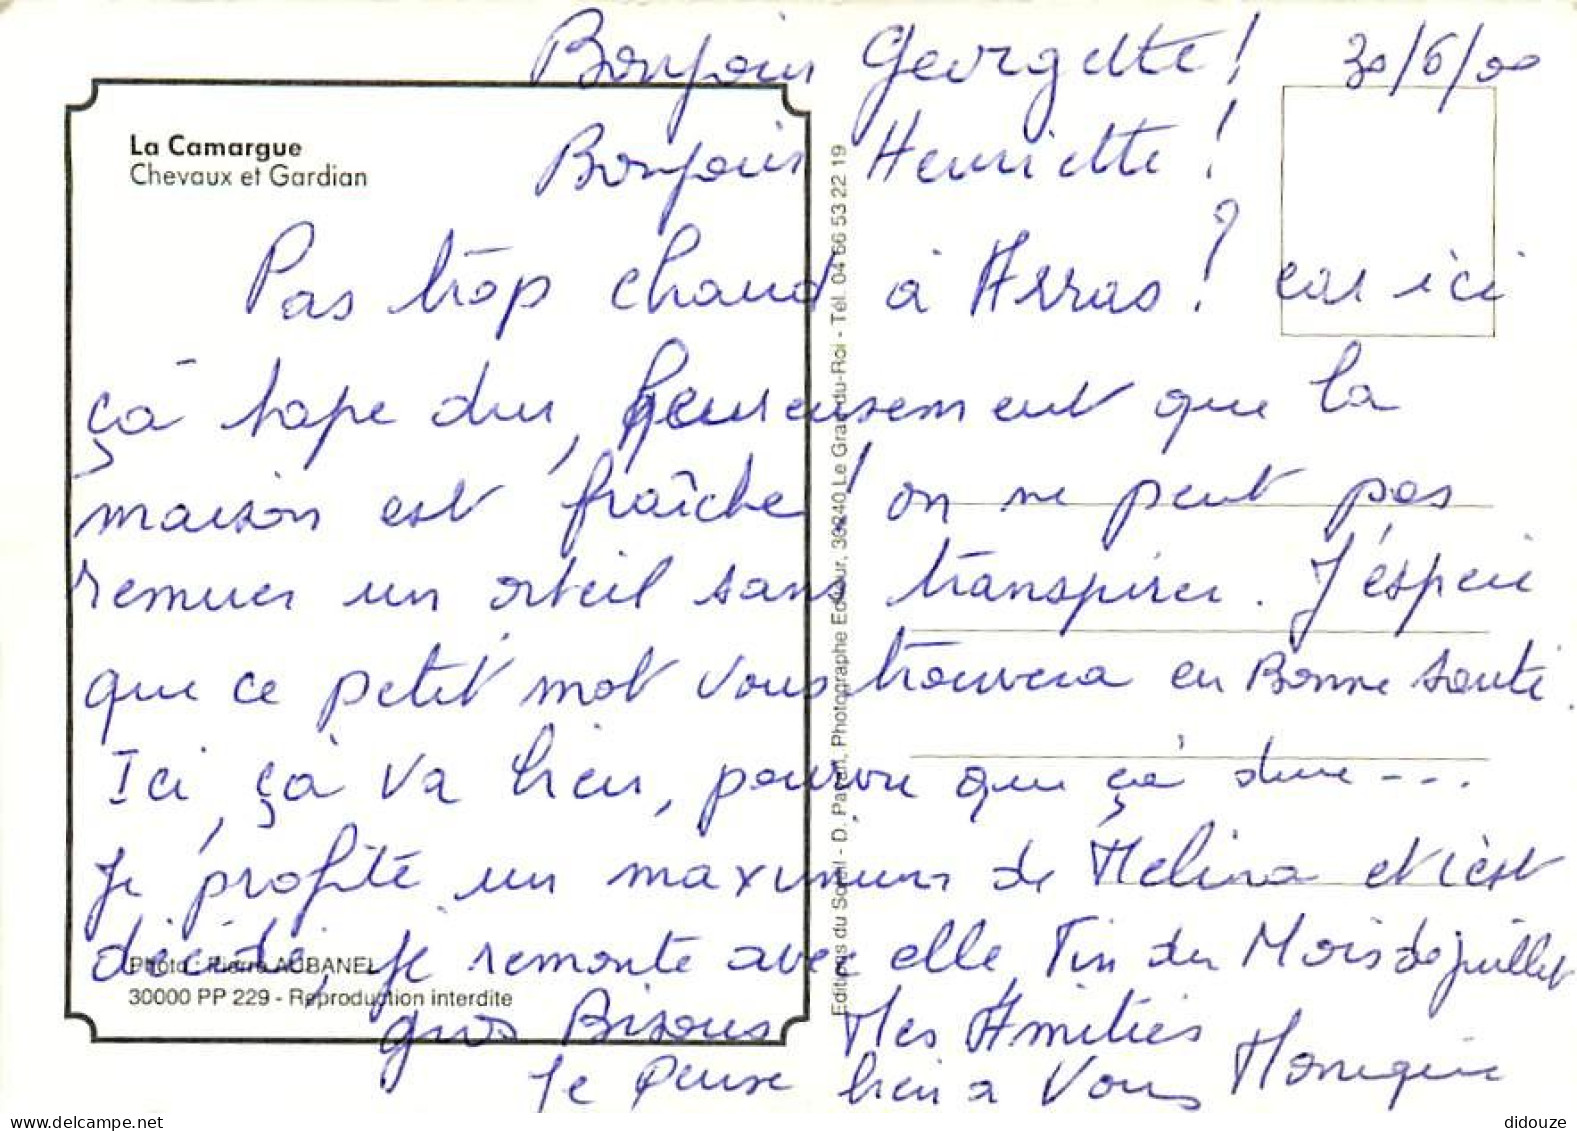 Bonjour Georgette ! 30/6/00
La Camargue
Chevaux et Gardian
Bonjour Henriette !
Pas trop chaud à Arras ? car ici
ça tape dur, heureusement que la
maison est fraîche ! on ne peut pas
remuer un orteil sans transpirer. J'espère
que ce petit mot vous trouvera en Bonne santé.
Ici, ça va bien, pourvu que ça dure ---
Je profite un maximum de Mélina et c'est
décidé, je remonte avec elle, Fin du Mois de juillet
Photo : Pierre AUBANEL
30000 PP 229 - Reproduction interdite
gros Bisous Mes Amitiés
Je pense bien à Vous Monique
Editions du Soleil - D. Photographe Editeur, 30240 Le Grau-du-Roi - Tél. 04 66 53 22 19
didouze